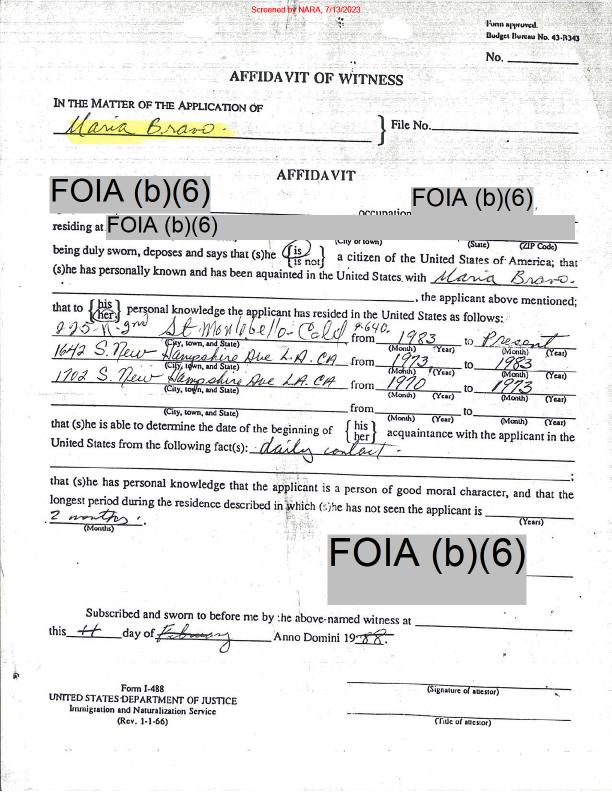 Screened by NARA, 7/13/2023
Form approved.
Budget Bureau No. 43-R343
No.
AFFIDAVIT OF WITNESS
IN THE MATTER OF THE APPLICATION OF
Maria Bravo.
} File No.
AFFIDAVIT
FOIA (b)(6)
occupation FOIA (b)(6)
residing at FOIA (b)(6)
(City or town) (State) (ZIP Code)
being duly sworn, deposes and says that (s)he { is is not } a citizen of the United States of America; that
(s)he has personally known and has been aquainted in the United States with Maria Bravo.
, the applicant above mentioned;
that to { his her } personal knowledge the applicant has resided in the United States as follows:
225-N-2nd St Montebello-Calif 9-640. from 1983 to Present
(City, town, and State) (Month) (Year) (Month) (Year)
1642 S. New Hampshire Ave L.A. CA from 1973 to 1983
(City, town, and State) (Month) (Year) (Month) (Year)
1702 S. New Hampshire Ave LA. CA from 1970 to 1973
(City, town, and State) (Month) (Year) (Month) (Year)
from to
(City, town, and State) (Month) (Year) (Month) (Year)
that (s)he is able to determine the date of the beginning of { his her } acquaintance with the applicant in the
United States from the following fact(s): daily contact.
;
that (s)he has personal knowledge that the applicant is a person of good moral character, and that the
longest period during the residence described in which (s)he has not seen the applicant is
(Years)
2 months.
(Months)
FOIA (b)(6)
Subscribed and sworn to before me by the above-named witness at
this 11 day of February Anno Domini 1988.
Form I-488
UNITED STATES DEPARTMENT OF JUSTICE
Immigration and Naturalization Service
(Rev. 1-1-66)
(Signature of attestor)
(Title of attestor)